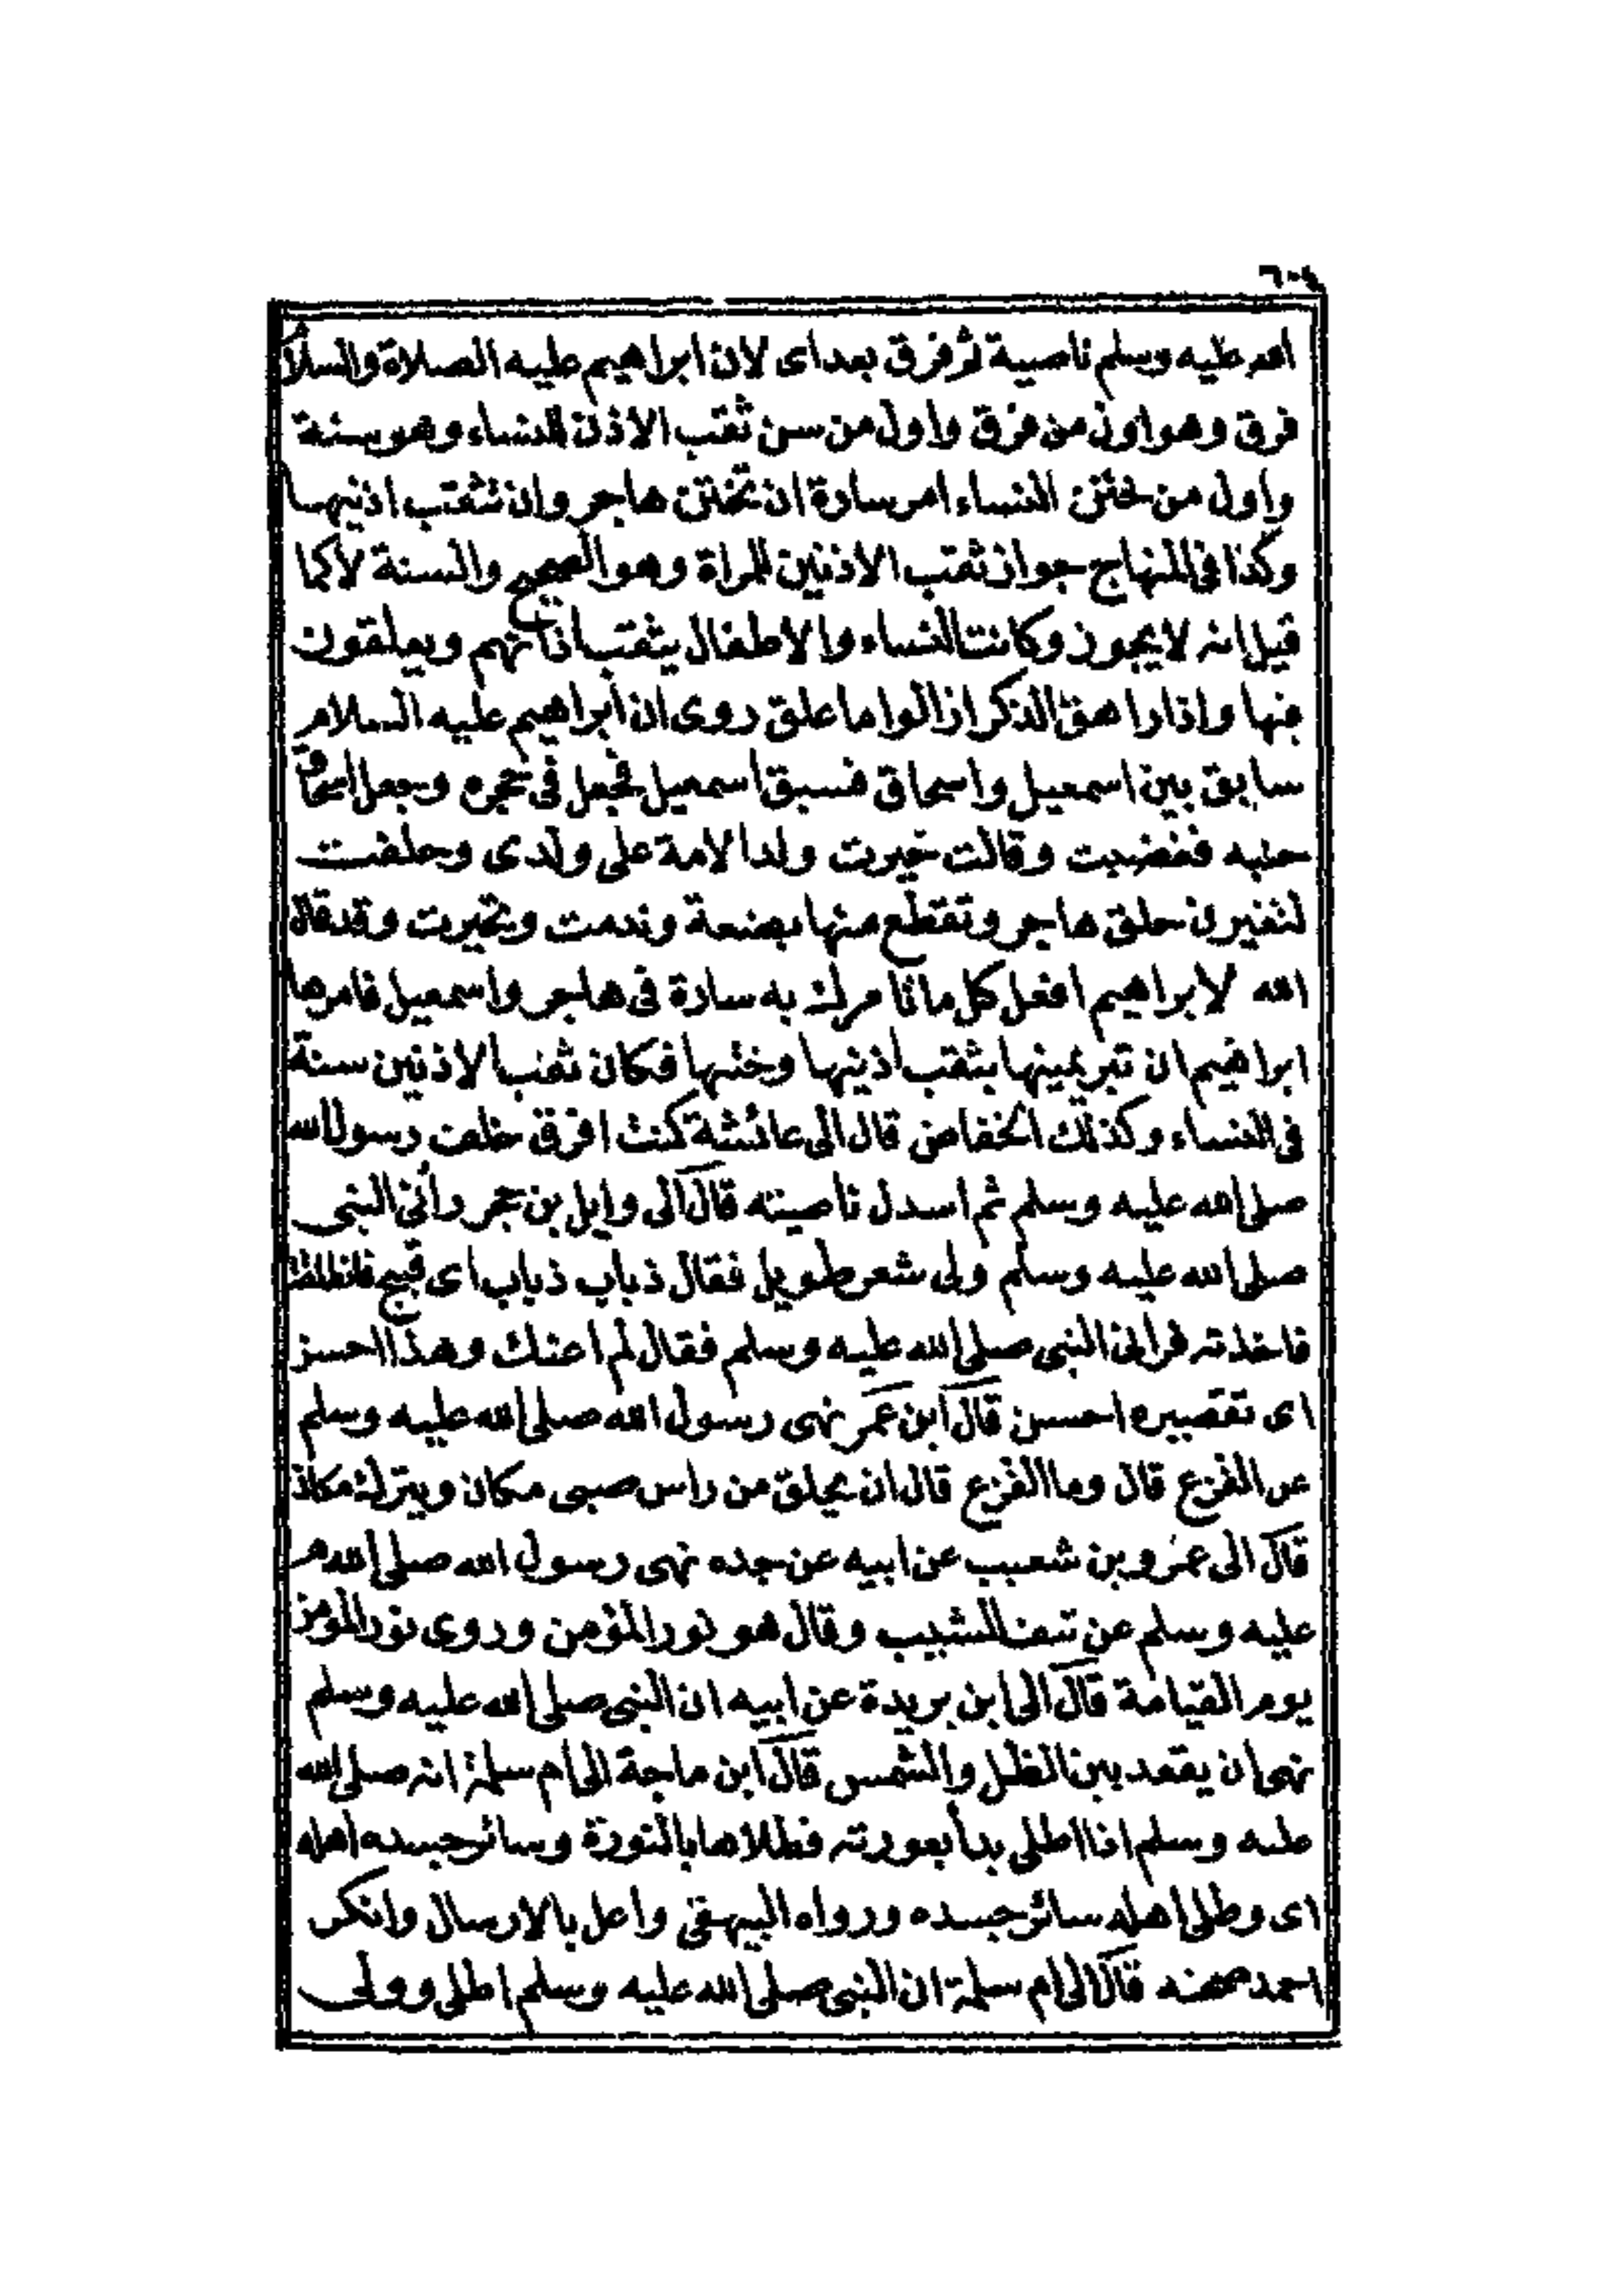 ٦٠٤
الله عليه وسلم ناصية ثم فرق بعد اى لان ابراهيم عليه الصلاة والسلام
فرق وهو اول من فرق واول من سن ثقب الاذن للنساء وهو سنة
واول من ختن النساء امر سارة ان تختن هاجر وان تثقب اذنيها
وكذا فى المنهاج جواز ثقب الاذنين للمراة وهو الصحيح والسنة لا كما
قيل انه لا يجوز وكانت النساء والاطفال يثقب اذانهم ويعلقون
فيها واذا راهق الذكر ازالوا ما علق روى ان ابراهيم عليه السلام
سابق بين اسمعيل واسحاق فسبق اسمعيل فجعل فى حجره وجعل اسحاق
جنبه فغضبت وقالت خيرت ولد الامة على ولدى وحلفت
لتغيرن حلق هاجر وتقطع منها بضعة وندمت وتحيرت وقد قال
الله لابراهيم افعل كل ما تامرك به سارة فى هاجر واسمعيل فامرها
ابراهيم ان تبر يمينها بثقب اذنيها وختنها فكان ثقب الاذنين سنة
فى النساء وكذلك الخفاض قال الى عائشة كنت افرق خلف رسول الله
صلى الله عليه وسلم ثم اسدل ناصيته قال الى وايل بن حجر رأنى النبى
صلى الله عليه وسلم ولى شعر طويل فقال ذباب ذباب اى قبيح فانطلقت
فاخذته فرانى النبى صلى الله عليه وسلم فقال لم اعنك وهذا احسن
اى تقصيره احسن قال ابن عمر نهى رسول الله صلى الله عليه وسلم
عن القزع قال وما القزع قال ان يحلق من راس صبى مكان ويترك مكان
قال الى عمرو بن شعيب عن ابيه عن جده نهى رسول الله صلى الله
عليه وسلم عن نتف الشيب وقال هو نور المؤمن وروى نور المومن
يوم القيامة قال الى ابن بريدة عن ابيه ان النبى صلى الله عليه وسلم
نهى ان يقعد بين الظل والشمس قال ابن ماجة الى ام سلمة انه صلى الله
عليه وسلم اذا اطلى بدأ بعورته فطلاها بالنورة وسائر جسده اهله
اى وطلى اهله سائر جسده ورواه البيهقى واعل بالارسال وانكر
احمد صحته قال الى ام سلمة ان النبى صلى الله عليه وسلم اطلى وولى